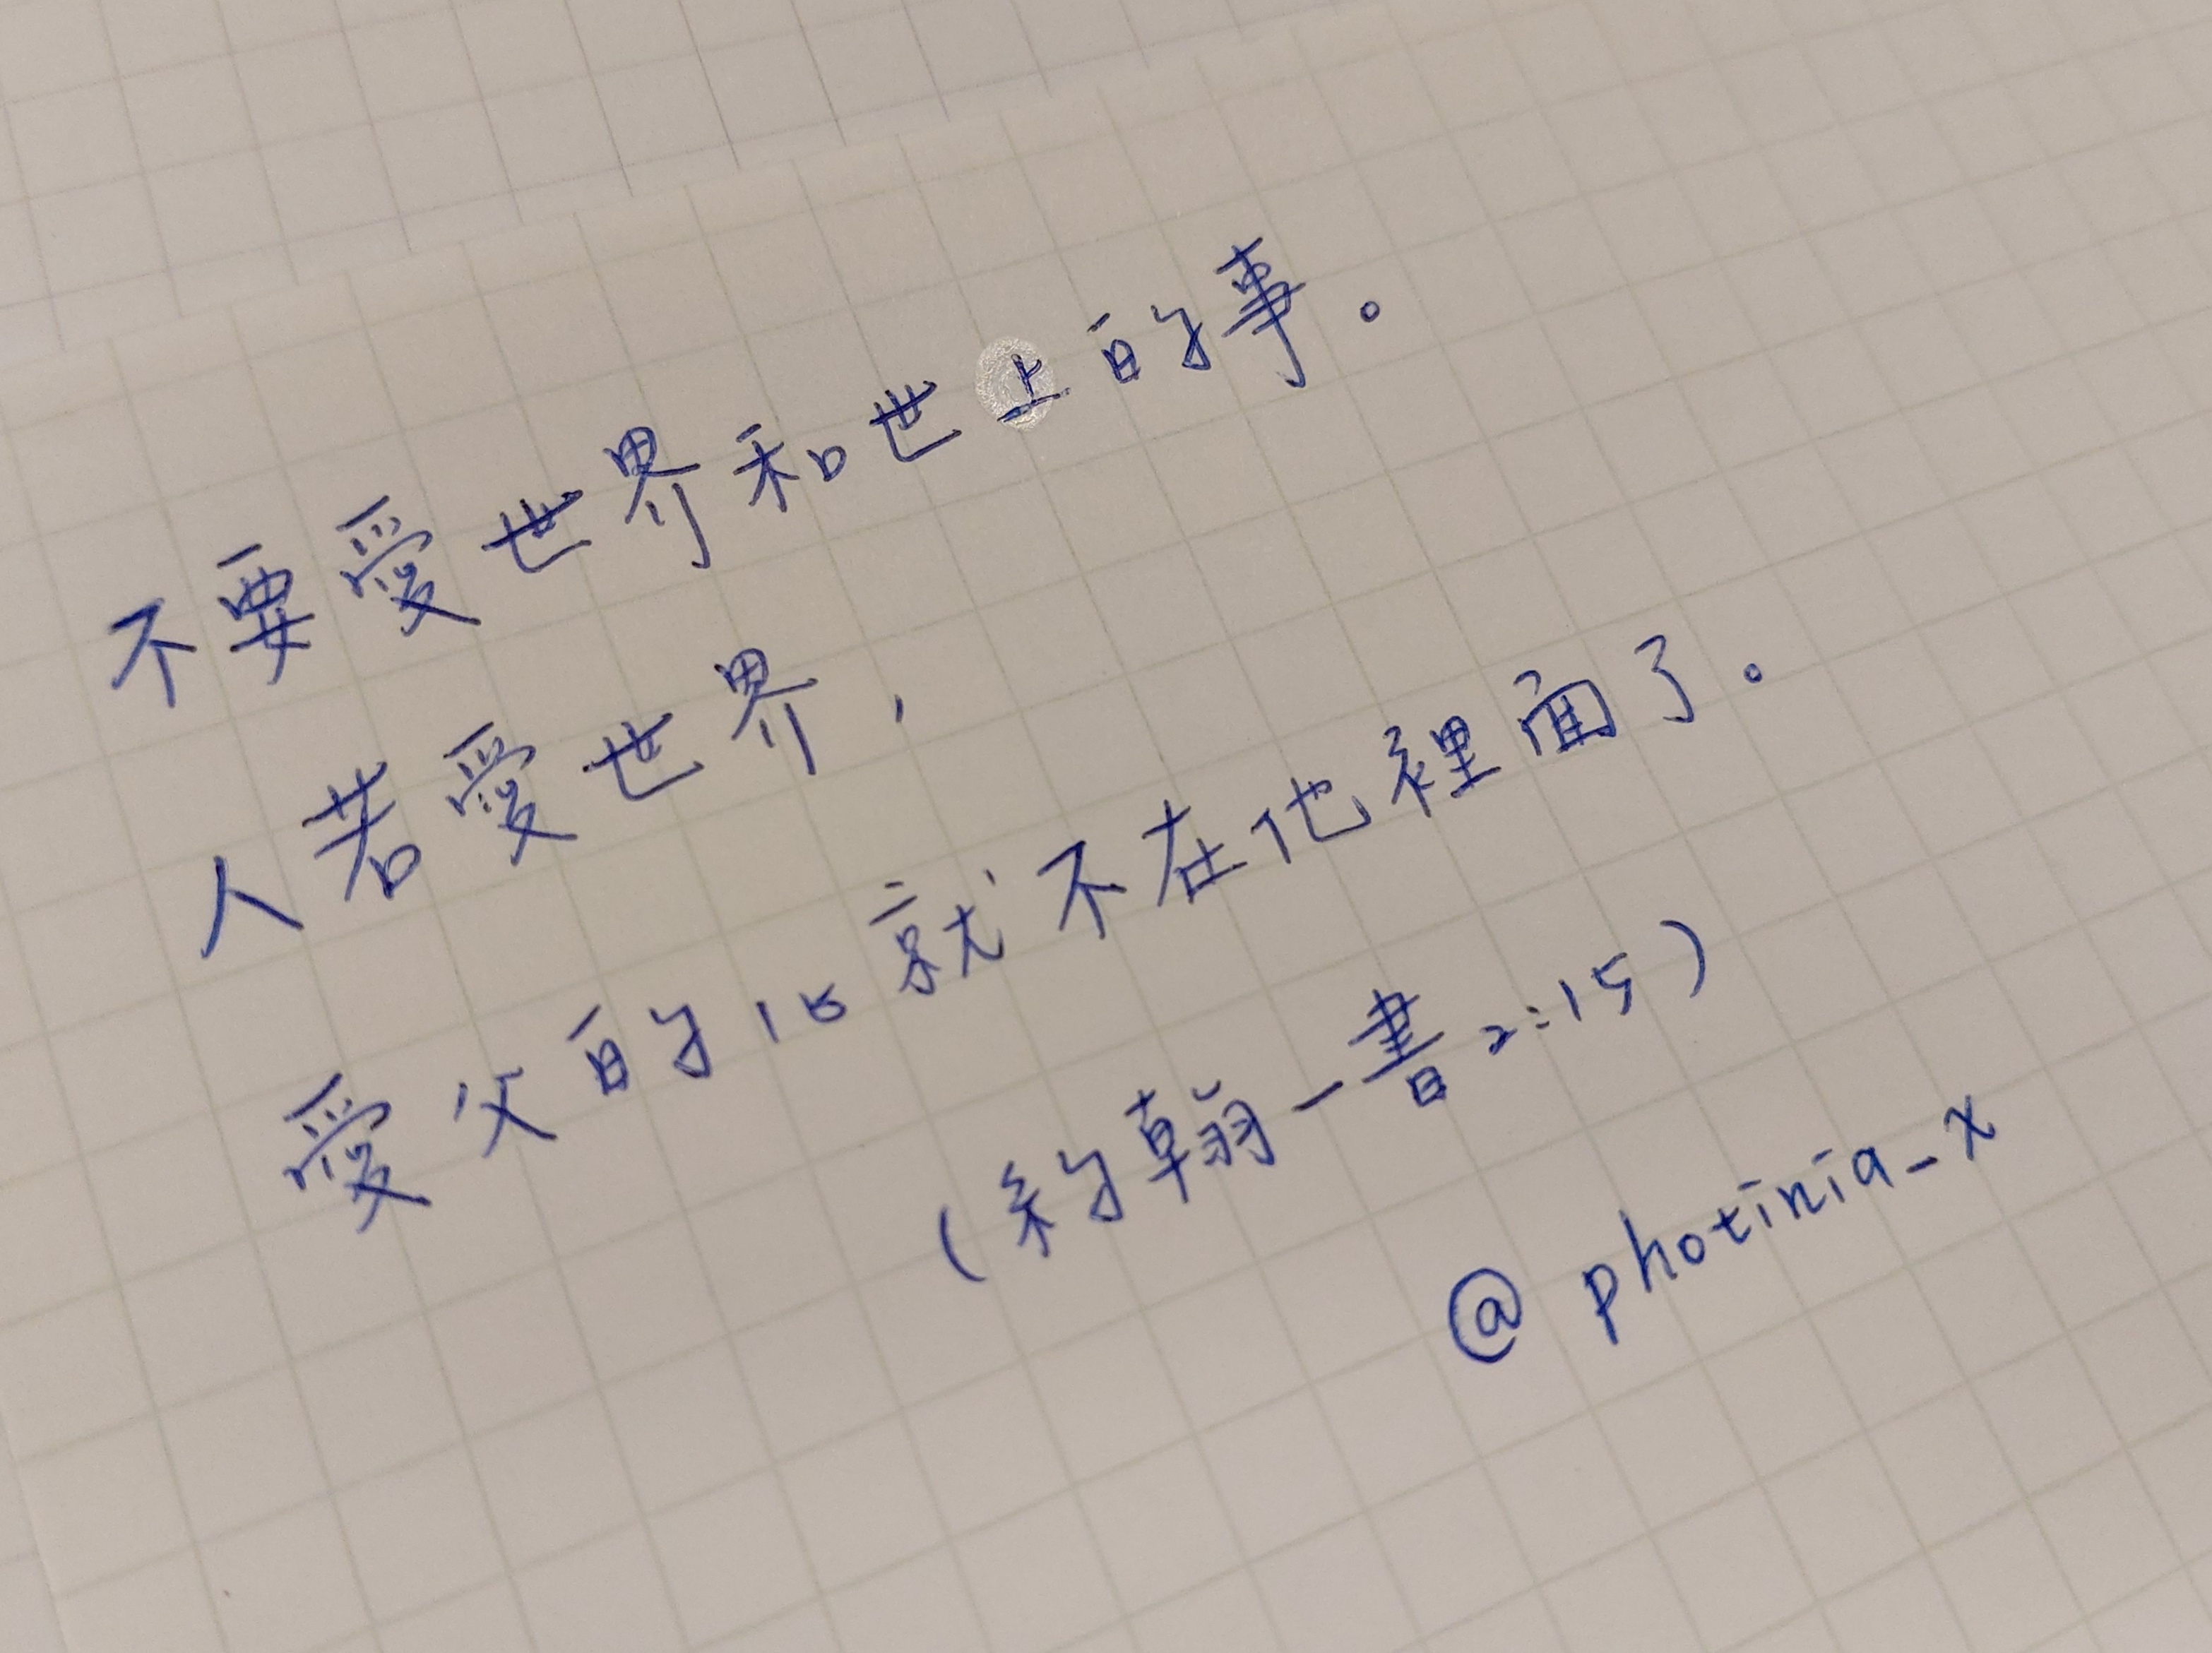 不要愛世界和世上的事。
人若愛世界,
愛父的心就不在他裡面了。
(約翰一書2:15)
@photinia_x